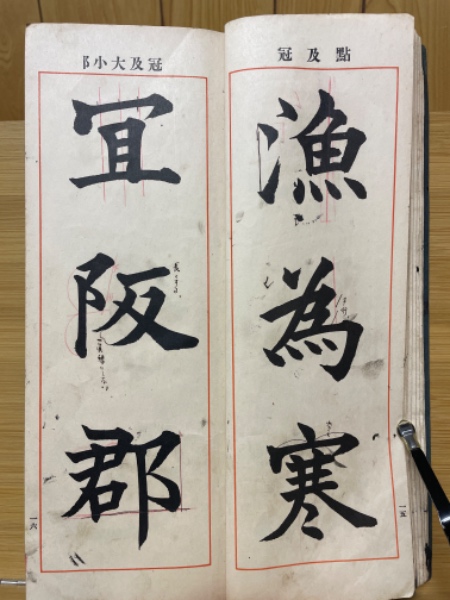 點及冠
漁為寒
一五
冠及大小阝
冝阪郡
一六